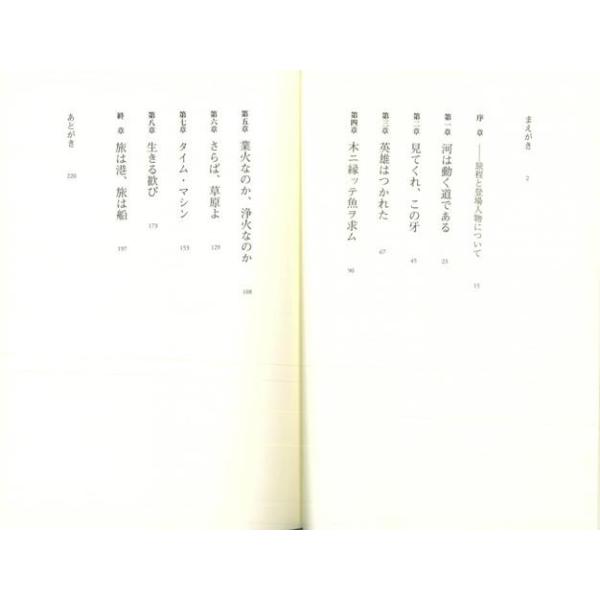 まえがき 2
序章――旅程と登場人物について 15
第一章 河は動く道である 23
第二章 見てくれ、この牙 45
第三章 英雄はつかれた 67
第四章 木ニ縁ッテ魚ヲ求ム 90
第五章 業火なのか、浄火なのか 108
第六章 さらば、草原よ 129
第七章 タイム・マシン 153
第八章 生きる歓び 173
終章 旅は港、旅は船 197
あとがき 220